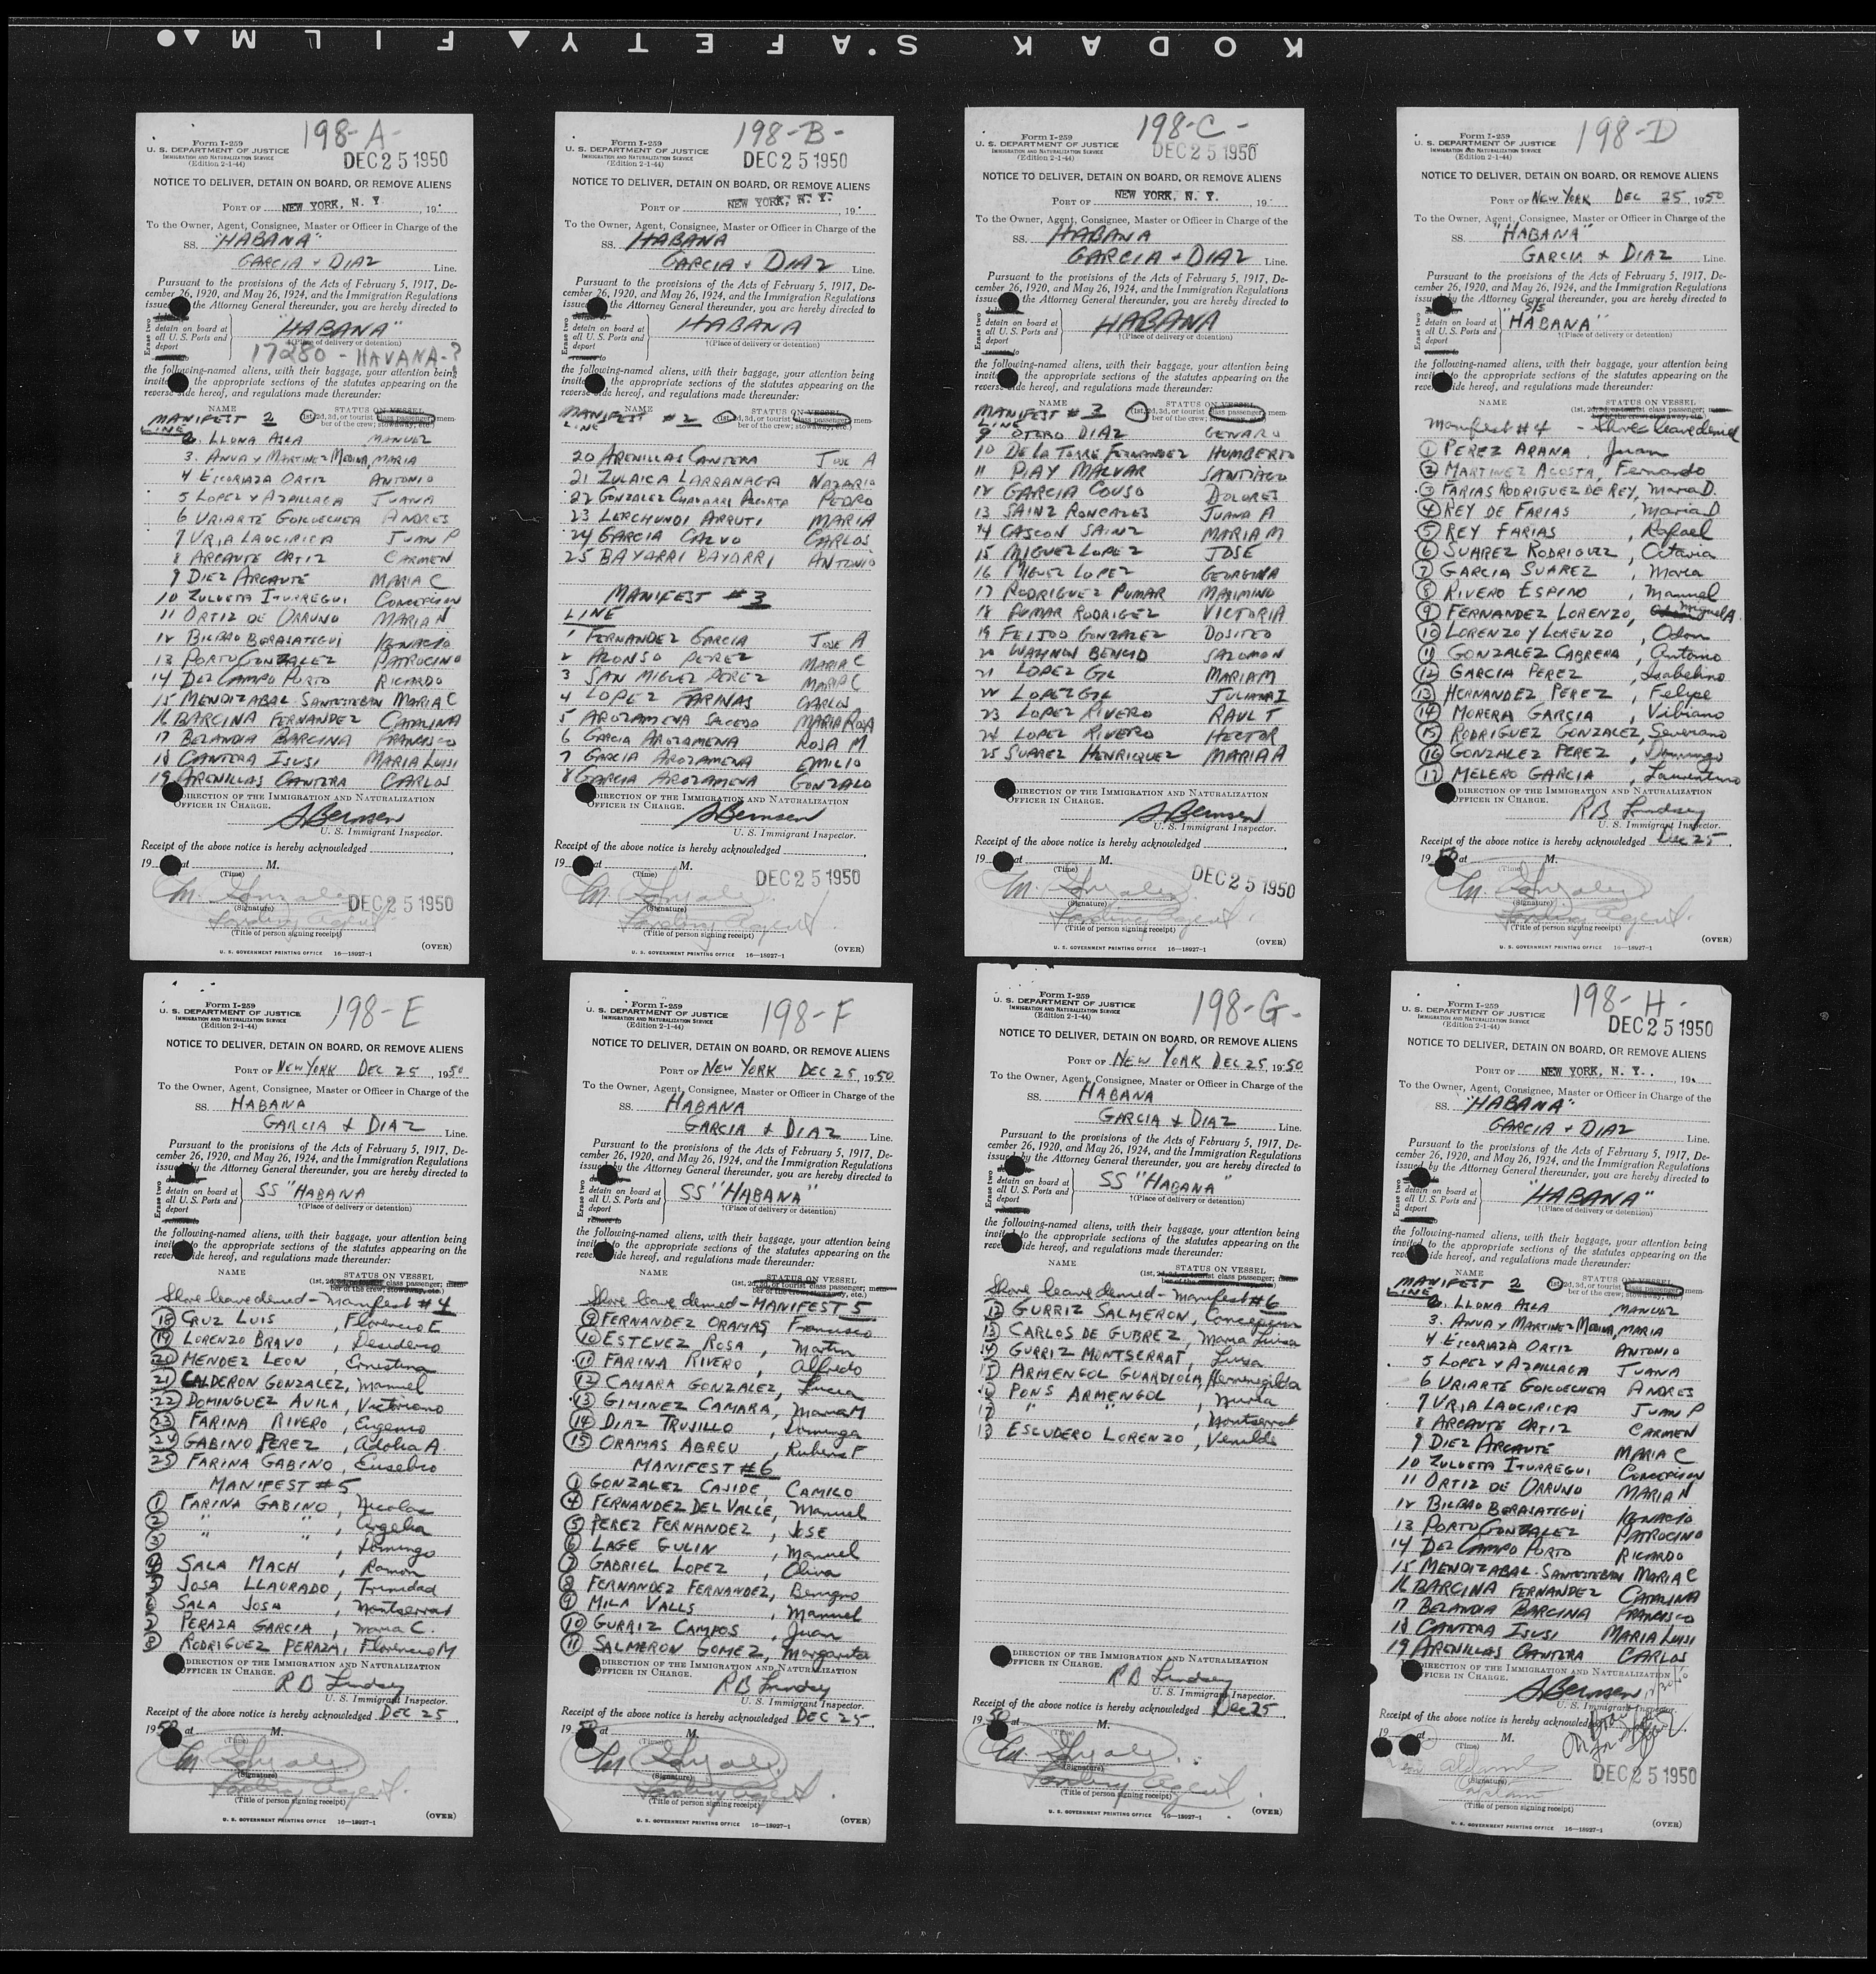 KODAK SAFETY FILM
198-A-
Form I-259
U. S. DEPARTMENT OF JUSTICE
IMMIGRATION AND NATURALIZATION SERVICE
(Edition 2-1-44)
DEC 25 1950
NOTICE TO DELIVER, DETAIN ON BOARD, OR REMOVE ALIENS
PORT OF NEW YORK, N. Y. , 19
To the Owner, Agent, Consignee, Master or Officer in Charge of the
SS. "HABANA"
GARCIA + DIAZ Line.
Pursuant to the provisions of the Acts of February 5, 1917, De-
cember 26, 1920, and May 26, 1924, and the Immigration Regulations
issued the Attorney General thereunder, you are hereby directed to
Erase two
detain on board at
all U. S. Ports and
deport
"HABANA"
†(Place of delivery or detention)
17280 - HAVANA-?
the following-named aliens, with their baggage, your attention being
invite the appropriate sections of the statutes appearing on the
reverse side hereof, and regulations made thereunder:
NAME STATUS ON VESSEL
MANIFEST 2 (1st, 2d, 3d, or tourist class passenger; mem-
LINE ber of the crew; stowaway, etc.)
2. LLONA ASLA MANUEL
3. ANUA Y MARTINEZ MEDINA, MARIA
4 EICORIAZA ORTIZ ANTONIO
5 LOPEZ Y AZPILLAGA JUANA
6 URIARTE GOICUECHEA ANDRES
7 URIA LAUCIRICA JUAN P
8 ARCANTE ORTIZ CARMEN
9 DIEZ ARCANTE MARIA C
10 ZULUETA ITURREGUI CONCEPCION
11 ORTIZ DE ORRUNO MARIA N
12 BILBAO BERASATEGUI IGNACIO
13 PORTU GONZALEZ PATROCINO
14 DEL CAMPO PORTO RICARDO
15 MENDIZABAL SANTESTEBAN MARIA C
16 BARCINA FERNANDEZ CATALINA
17 BELANDIA BARCINA FRANCISCO
18 CANTERA ISUSI MARIA LUISI
19 ARENILLAS CANTERA CARLOS
DIRECTION OF THE IMMIGRATION AND NATURALIZATION
OFFICER IN CHARGE.
U. S. Immigrant Inspector.
Receipt of the above notice is hereby acknowledged
19 at M.
(Time)
DEC 25 1950
(Signature)
Landing Agent
(Title of person signing receipt)
(OVER)
U. S. GOVERNMENT PRINTING OFFICE 16—18927-1
198-B-
Form I-259
U. S. DEPARTMENT OF JUSTICE
IMMIGRATION AND NATURALIZATION SERVICE
(Edition 2-1-44)
DEC 25 1950
NOTICE TO DELIVER, DETAIN ON BOARD, OR REMOVE ALIENS
PORT OF NEW YORK, N. Y. 19
To the Owner, Agent, Consignee, Master or Officer in Charge of the
SS. HABANA
GARCIA + DIAZ Line.
Pursuant to the provisions of the Acts of February 5, 1917, De-
cember 26, 1920, and May 26, 1924, and the Immigration Regulations
issued the Attorney General thereunder, you are hereby directed to
Erase two
detain on board at
all U. S. Ports and
deport
remove to
HABANA
†(Place of delivery or detention)
the following-named aliens, with their baggage, your attention being
invite the appropriate sections of the statutes appearing on the
reverse side hereof, and regulations made thereunder:
NAME STATUS ON VESSEL
MANIFEST #2 (1st, 2d, 3d, or tourist class passenger; mem-
LINE ber of the crew; stowaway, etc.)
20 ARENILLAS CANTERA JOSE A
21 ZULAICA LARRANAGA NAZARIO
22 GONZALEZ CHAVARRI ACORTA PEDRO
23 LERCHUNDI ARRUTI MARIA
24 GARCIA CALVO CARLOS
25 BAYARRI BAYARRI ANTONIO
MANIFEST #3
LINE
1 FERNANDEZ GARCIA JOSE A
2 ALONSO PEREZ MARIA C
3 SAN MIGUEL PEREZ MARIA C
4 LOPEZ FARINAS CARLOS
5 AROZAMENA SALCEDO MARIA ROSA
6 GARCIA AROZAMENA ROSA M
7 GARCIA AROZAMENA EMILIO
8 GARCIA AROZAMENA GONZALO
DIRECTION OF THE IMMIGRATION AND NATURALIZATION
OFFICER IN CHARGE.
U. S. Immigrant Inspector.
Receipt of the above notice is hereby acknowledged
19 at M.
(Time)
DEC 25 1950
(Signature)
Landing Agent.
(Title of person signing receipt)
(OVER)
U. S. GOVERNMENT PRINTING OFFICE 16—18927-1
198-C-
Form I-259
U. S. DEPARTMENT OF JUSTICE
IMMIGRATION AND NATURALIZATION SERVICE
(Edition 2-1-44)
DEC 25 1950
NOTICE TO DELIVER, DETAIN ON BOARD, OR REMOVE ALIENS
PORT OF NEW YORK, N. Y. 19
To the Owner, Agent, Consignee, Master or Officer in Charge of the
SS. HABANA
GARCIA + DIAZ Line.
Pursuant to the provisions of the Acts of February 5, 1917, De-
cember 26, 1920, and May 26, 1924, and the Immigration Regulations
issued the Attorney General thereunder, you are hereby directed to
Erase two
detain on board at
all U. S. Ports and
deport
remove to
HABANA
†(Place of delivery or detention)
the following-named aliens, with their baggage, your attention being
invite the appropriate sections of the statutes appearing on the
reverse side hereof, and regulations made thereunder:
NAME STATUS ON VESSEL
MANIFEST #3 (1st, 2d, 3d, or tourist class passenger; mem-
LINE ber of the crew; stowaway, etc.)
9 OTERO DIAZ GENARO
10 DE LA TORRE FERNANDEZ HUMBERTO
11 PIAY MALVAR SANTIAGO
12 GARCIA COUSO DOLORES
13 SAINZ RONCALES JUANA A
14 CASCON SAINZ MARIA M
15 MIGUEL LOPEZ JOSE
16 MIGUEL LOPEZ GEORGINA
17 RODRIGUEZ PUMAR MAXIMINO
18 PUMAR RODRIGEZ VICTORIA
19 FEIJOO GONZALEZ DOSITEO
20 WAHNON BENCID SALOMON
21 LOPEZ GIL MARIA M
22 LOPEZ GIL JULIANA I
23 LOPEZ RIVERO RAUL T
24 LOPEZ RIVERO HECTOR
25 SUAREZ HENRIQUEZ MARIA A
DIRECTION OF THE IMMIGRATION AND NATURALIZATION
OFFICER IN CHARGE.
U. S. Immigrant Inspector.
Receipt of the above notice is hereby acknowledged
19 at M.
(Time)
DEC 25 1950
(Signature)
Landing Agent.
(Title of person signing receipt)
(OVER)
U. S. GOVERNMENT PRINTING OFFICE 16—18927-1
198-D
Form I-259
U. S. DEPARTMENT OF JUSTICE
IMMIGRATION AND NATURALIZATION SERVICE
(Edition 2-1-44)
NOTICE TO DELIVER, DETAIN ON BOARD, OR REMOVE ALIENS
PORT OF NEW YORK DEC 25 1950
To the Owner, Agent, Consignee, Master or Officer in Charge of the
SS. "HABANA"
GARCIA & DIAZ Line.
Pursuant to the provisions of the Acts of February 5, 1917, De-
cember 26, 1920, and May 26, 1924, and the Immigration Regulations
issued by the Attorney General thereunder, you are hereby directed to
Erase two
detain on board at
all U. S. Ports and
deport
S/S
"HABANA"
†(Place of delivery or detention)
the following-named aliens, with their baggage, your attention being
invited to the appropriate sections of the statutes appearing on the
reverse side hereof, and regulations made thereunder:
NAME STATUS ON VESSEL
(1st, 2d, 3d, or tourist class passenger; mem-
ber of the crew; stowaway, etc.)
Manifest #4 - Shore leave denied
1 PEREZ ARANA, Juan
2 MARTINEZ ACOSTA, Fernando
3 FARIAS RODRIGUEZ DE REY, Maria D.
4 REY DE FARIAS, Maria D
5 REY FARIAS, Rafael
6 SUAREZ RODRIGUEZ, Octavia
7 GARCIA SUAREZ, Maria
8 RIVERO ESPINO, Manuel
9 FERNANDEZ LORENZO, Miguel A.
10 LORENZO Y LORENZO, Odon
11 GONZALEZ CABRERA, Antonio
12 GARCIA PEREZ, Isabelino
13 HERNANDEZ PEREZ, Felipe
14 MORERA GARCIA, Vibiano
15 RODRIGUEZ GONZALEZ, Severiano
16 GONZALEZ PEREZ, Domingo
17 MELERO GARCIA, Laurentino
DIRECTION OF THE IMMIGRATION AND NATURALIZATION
OFFICER IN CHARGE.
RB Lindsey
U. S. Immigrant Inspector.
Receipt of the above notice is hereby acknowledged Dec 25
1950 at M.
(Time)
(Signature)
Landing Agent.
(Title of person signing receipt)
(OVER)
U. S. GOVERNMENT PRINTING OFFICE 16—18927-1
198-E
Form I-259
U. S. DEPARTMENT OF JUSTICE
IMMIGRATION AND NATURALIZATION SERVICE
(Edition 2-1-44)
NOTICE TO DELIVER, DETAIN ON BOARD, OR REMOVE ALIENS
PORT OF NEW YORK DEC 25, 1950
To the Owner, Agent, Consignee, Master or Officer in Charge of the
SS. HABANA
GARCIA & DIAZ Line.
Pursuant to the provisions of the Acts of February 5, 1917, De-
cember 26, 1920, and May 26, 1924, and the Immigration Regulations
issued by the Attorney General thereunder, you are hereby directed to
Erase two
detain on board at
all U. S. Ports and
deport
remove to
SS "HABANA
†(Place of delivery or detention)
the following-named aliens, with their baggage, your attention being
invited to the appropriate sections of the statutes appearing on the
reverse side hereof, and regulations made thereunder:
NAME STATUS ON VESSEL
(1st, 2d, 3d, or tourist class passenger; mem-
ber of the crew; stowaway, etc.)
Shore leave denied - Manifest #4
18 CRUZ LUIS, Florencio E
19 LORENZO BRAVO, Desiderio
20 MENDEZ LEON, Ernestina
21 CALDERON GONZALEZ, Manuel
22 DOMINGUEZ AVILA, Victoriano
23 FARINA RIVERO, Eugenio
24 GABINO PEREZ, Adolia A
25 FARINA GABINO, Eusebio
MANIFEST #5
1 FARINA GABINO, Nicolas
2 " ", Angelia
3 " ", Domingo
4 SALA MACH, Ramon
5 JOSA LLAURADO, Trinidad
6 SALA JOSA, Montserrat
7 PERAZA GARCIA, Maria C.
8 RODRIGUEZ PERAZA, Florencio M
DIRECTION OF THE IMMIGRATION AND NATURALIZATION
OFFICER IN CHARGE.
RB Lindsey
U. S. Immigrant Inspector.
Receipt of the above notice is hereby acknowledged DEC 25
1950 at M.
(Time)
(Signature)
Landing Agent.
(Title of person signing receipt)
(OVER)
U. S. GOVERNMENT PRINTING OFFICE 16—18927-1
198-F
Form I-259
U. S. DEPARTMENT OF JUSTICE
IMMIGRATION AND NATURALIZATION SERVICE
(Edition 2-1-44)
NOTICE TO DELIVER, DETAIN ON BOARD, OR REMOVE ALIENS
PORT OF NEW YORK DEC 25, 1950
To the Owner, Agent, Consignee, Master or Officer in Charge of the
SS. HABANA
GARCIA & DIAZ Line.
Pursuant to the provisions of the Acts of February 5, 1917, De-
cember 26, 1920, and May 26, 1924, and the Immigration Regulations
issued by the Attorney General thereunder, you are hereby directed to
Erase two
detain on board at
all U. S. Ports and
deport
remove to
SS "HABANA"
†(Place of delivery or detention)
the following-named aliens, with their baggage, your attention being
invited to the appropriate sections of the statutes appearing on the
reverse side hereof, and regulations made thereunder:
NAME STATUS ON VESSEL
(1st, 2d, 3d, or tourist class passenger; mem-
ber of the crew; stowaway, etc.)
Shore leave denied - MANIFEST 5
9 FERNANDEZ ORAMAS, Francisco
10 ESTEVEZ ROSA, Martin
11 FARINA RIVERO, Alfredo
12 CAMARA GONZALEZ, Lucia
13 GIMINEZ CAMARA, Maria M
14 DIAZ TRUJILLO, Dominga
15 ORAMAS ABREU, Rubens F
MANIFEST #6
1 GONZALEZ CASIDE, CAMILO
4 FERNANDEZ DEL VALLE, Manuel
5 PEREZ FERNANDEZ, JOSE
6 LAGE GULIN, Manuel
7 GABRIEL LOPEZ, Oliva
8 FERNANDEZ FERNANDEZ, Benigno
9 MILA VALLS, Manuel
10 GURRIZ CAMPOS, Juan
11 SALMERON GOMEZ, Margarita
DIRECTION OF THE IMMIGRATION AND NATURALIZATION
OFFICER IN CHARGE.
RB Lindsey
U. S. Immigrant Inspector.
Receipt of the above notice is hereby acknowledged DEC 25
1950 at M.
(Time)
(Signature)
Landing Agent
(Title of person signing receipt)
(OVER)
U. S. GOVERNMENT PRINTING OFFICE 16—18927-1
198-G-
Form I-259
U. S. DEPARTMENT OF JUSTICE
IMMIGRATION AND NATURALIZATION SERVICE
(Edition 2-1-44)
NOTICE TO DELIVER, DETAIN ON BOARD, OR REMOVE ALIENS
PORT OF NEW YORK DEC 25, 1950
To the Owner, Agent, Consignee, Master or Officer in Charge of the
SS. HABANA
GARCIA & DIAZ Line.
Pursuant to the provisions of the Acts of February 5, 1917, De-
cember 26, 1920, and May 26, 1924, and the Immigration Regulations
issued by the Attorney General thereunder, you are hereby directed to
Erase two
detain on board at
all U. S. Ports and
deport
SS "HABANA"
†(Place of delivery or detention)
the following-named aliens, with their baggage, your attention being
invited to the appropriate sections of the statutes appearing on the
reverse side hereof, and regulations made thereunder:
NAME STATUS ON VESSEL
(1st, 2d, 3d, or tourist class passenger; mem-
ber of the crew; stowaway, etc.)
Shore leave denied - Manifest #6
12 GURRIZ SALMERON, Concepcion
13 CARLOS DE GUBREZ, Maria Luisa
14 GURRIZ MONTSERRAT, Luisa
15 ARMENGOL GUARDIOLA, Hermenegilda
16 PONS ARMENGOL, Nuria
17 " ", Montserrat
18 ESCUDERO LORENZO, Venilde
DIRECTION OF THE IMMIGRATION AND NATURALIZATION
OFFICER IN CHARGE.
RB Lindsey
U. S. Immigrant Inspector.
Receipt of the above notice is hereby acknowledged Dec 25
1950 at M.
(Time)
(Signature)
Landing Agent
(Title of person signing receipt)
(OVER)
U. S. GOVERNMENT PRINTING OFFICE 16—18927-1
198-H-
Form I-259
U. S. DEPARTMENT OF JUSTICE
IMMIGRATION AND NATURALIZATION SERVICE
(Edition 2-1-44)
DEC 25 1950
NOTICE TO DELIVER, DETAIN ON BOARD, OR REMOVE ALIENS
PORT OF NEW YORK, N. Y. , 19
To the Owner, Agent, Consignee, Master or Officer in Charge of the
SS. "HABANA"
GARCIA + DIAZ Line.
Pursuant to the provisions of the Acts of February 5, 1917, De-
cember 26, 1920, and May 26, 1924, and the Immigration Regulations
issued by the Attorney General thereunder, you are hereby directed to
Erase two
detain on board at
all U. S. Ports and
deport
"HABANA"
†(Place of delivery or detention)
the following-named aliens, with their baggage, your attention being
invited to the appropriate sections of the statutes appearing on the
reverse side hereof, and regulations made thereunder:
NAME STATUS ON VESSEL
MANIFEST 2 (1st, 2d, 3d, or tourist class passenger; mem-
LINE ber of the crew; stowaway, etc.)
2. LLONA ASLA MANUEL
3. ANUA Y MARTINEZ MEDINA, MARIA
4 EICORIAZA ORTIZ ANTONIO
5 LOPEZ Y AZPILLAGA JUANA
6 URIARTE GOICUECHEA ANDRES
7 URIA LAUCIRICA JUAN P
8 ARCANTE ORTIZ CARMEN
9 DIEZ ARCANTE MARIA C
10 ZULUETA ITURREGUI CONCEPCION
11 ORTIZ DE ORRUNO MARIA N
12 BILBAO BERASATEGUI IGNACIO
13 PORTU GONZALEZ PATROCINO
14 DEL CAMPO PORTO RICARDO
15 MENDIZABAL SANTESTEBAN MARIA C
16 BARCINA FERNANDEZ CATALINA
17 BELANDIA BARCINA FRANCISCO
18 CANTERA ISUSI MARIA LUISI
19 ARENILLAS CANTERA CARLOS
DIRECTION OF THE IMMIGRATION AND NATURALIZATION
OFFICER IN CHARGE.
U. S. Immigrant Inspector.
Receipt of the above notice is hereby acknowledged
19 at M.
(Time)
(Signature)
DEC 25 1950
Captain
(Title of person signing receipt)
(OVER)
U. S. GOVERNMENT PRINTING OFFICE 16—18927-1